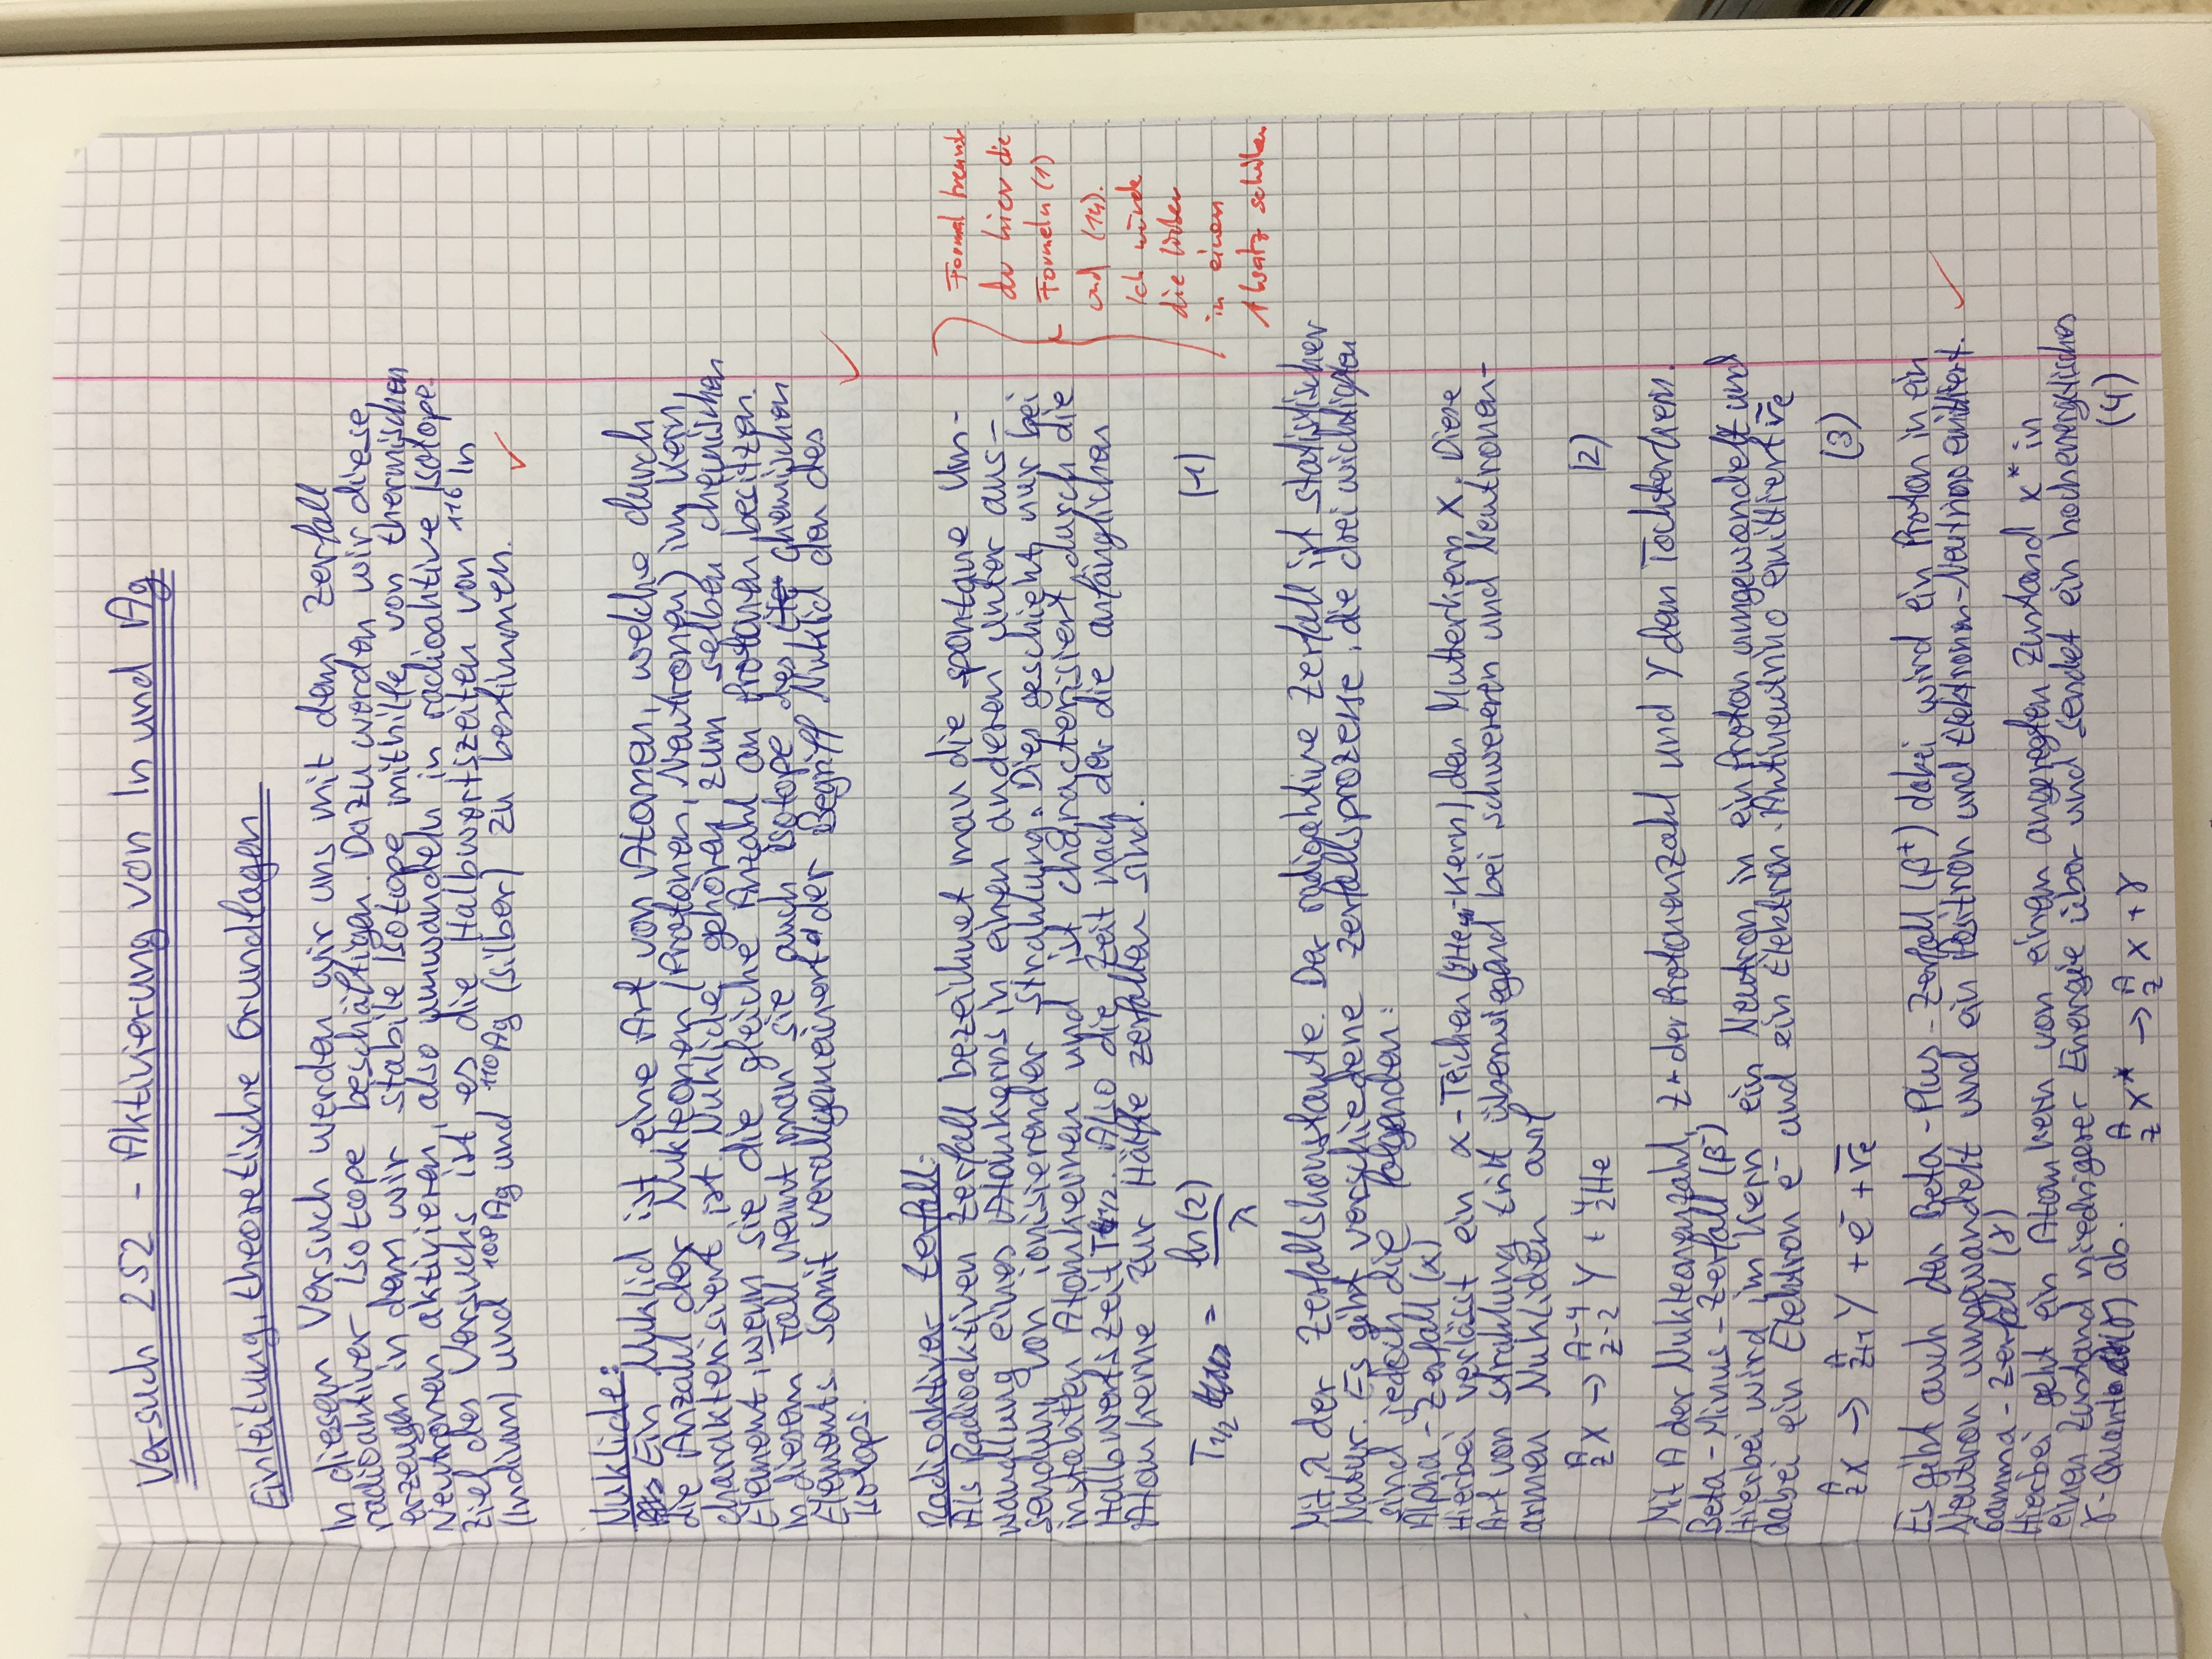 Versuch 252 - Aktivierung von In und Ag
Einleitung, theoretische Grundlagen
In diesem Versuch werden wir uns mit dem Zerfall
radioaktiver Isotope beschäftigen. Dazu werden wir diese
erzeugen in dem wir stabile Isotope mithilfe von thermischen
Neutronen aktivieren, also umwandeln in radioaktive Isotope.
Ziel des Versuchs ist es die Halbwertszeiten von ¹¹⁶In
(Indium) und ¹⁰⁸Ag und ¹¹⁰Ag (Silber) zu bestimmen.
Nuklide:
Ein Nuklid ist eine Art von Atomen, welche durch
die Anzahl der Nukleonen (Protonen, Neutronen) im Kern,
charakterisiert ist. Nuklide gehören zum selben chemischen
Element, wenn sie die gleiche Anzahl an Protonen besitzen.
In diesem Fall nennt man sie auch Isotope des chemischen
Elements. Somit verallgemeinert der Begriff Nuklid den des
Isotops.
Radioaktiver Zerfall:
Als Radioaktiven Zerfall bezeichnet man die spontane Um-
wandlung eines Atomkerns in einen anderen unter aus-
sendung von ionisierender Strahlung. Dies geschieht nur bei
instabilen Atomkernen und ist characterisiert durch die
Halbwertszeit T1/2. Also die Zeit nach der die anfänglichen
Atomkerne zur Hälfte zerfallen sind.
T1/2 = ln(2)/λ (1)
Mit λ der Zerfallskonstante. Der radioaktive Zerfall ist statistischer
Natur. Es gibt verschiedene Zerfallsprozesse, die drei wichtigsten
sind jedoch die folgenden:
Alpha-Zerfall (α)
Hierbei verlässt ein α-Teichen (4He-Kern) den Mutterkern X. Diese
Art von Strahlung tritt überwiegend bei schwereren und Neutronen-
armen Nukliden auf
ᴬ_Z X → ᴬ⁻⁴_Z-2 Y + ⁴_2 He (2)
Mit A der Nukleonenzahl, Z der Protonenzahl und Y dem Tochterkern.
Beta-Minus-Zerfall (β⁻)
Hierbei wird im Kern ein Neutron in ein Proton umgewandelt und
dabei ein Elektron e⁻ und ein Elektron-Antineutrino emittiert ν̄e
ᴬ_Z X → ᴬ_Z+1 Y + e⁻ + ν̄e (3)
Es gibt auch den Beta-Plus-Zerfall (β⁺) dabei wird ein Proton in ein
Neutron umgewandelt und ein Positron und Elektronen-Neutrino emittiert.
Gamma-Zerfall (γ)
Hierbei geht ein Atomkern von einem angeregten Zustand X* in
einen Zustand niedrigerer Energie über und sendet ein hochenergetisches
γ-Quant (γ) ab.
ᴬ_Z X* → ᴬ_Z X + γ (4)
Formal trennst
du hier die
Formeln (1)
und (14).
Ich würde
die lieber
in einen
Absatz schieben